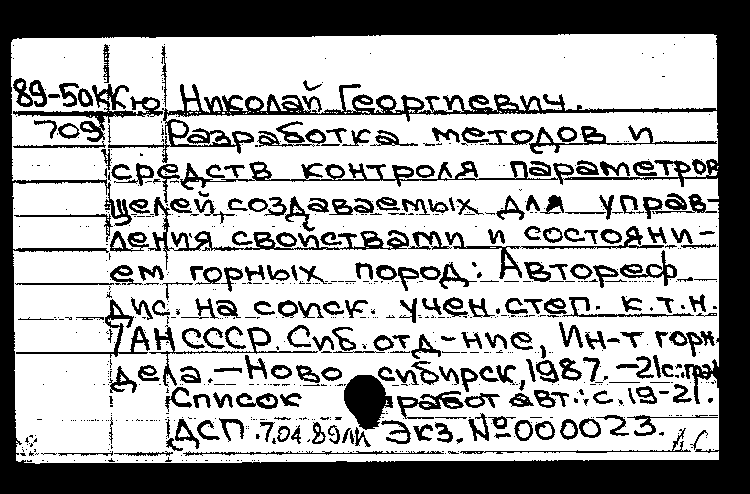 89-50к Кю Николай Георгиевич.
709 Разработка методов и
средств контроля параметров
щелей, создаваемых для управ-
ления свойствами и состояни-
ем горных пород: Автореф.
дис. на соиск. учен. степ. к.т.н.
/АН СССР. Сиб. отд-ние, Ин-т горн.
дела. — Новосибирск, 1987. — 21с.: граф
Список работ авт.: с. 19-21.
ДСП. 7.04.89 Экз. №000023.